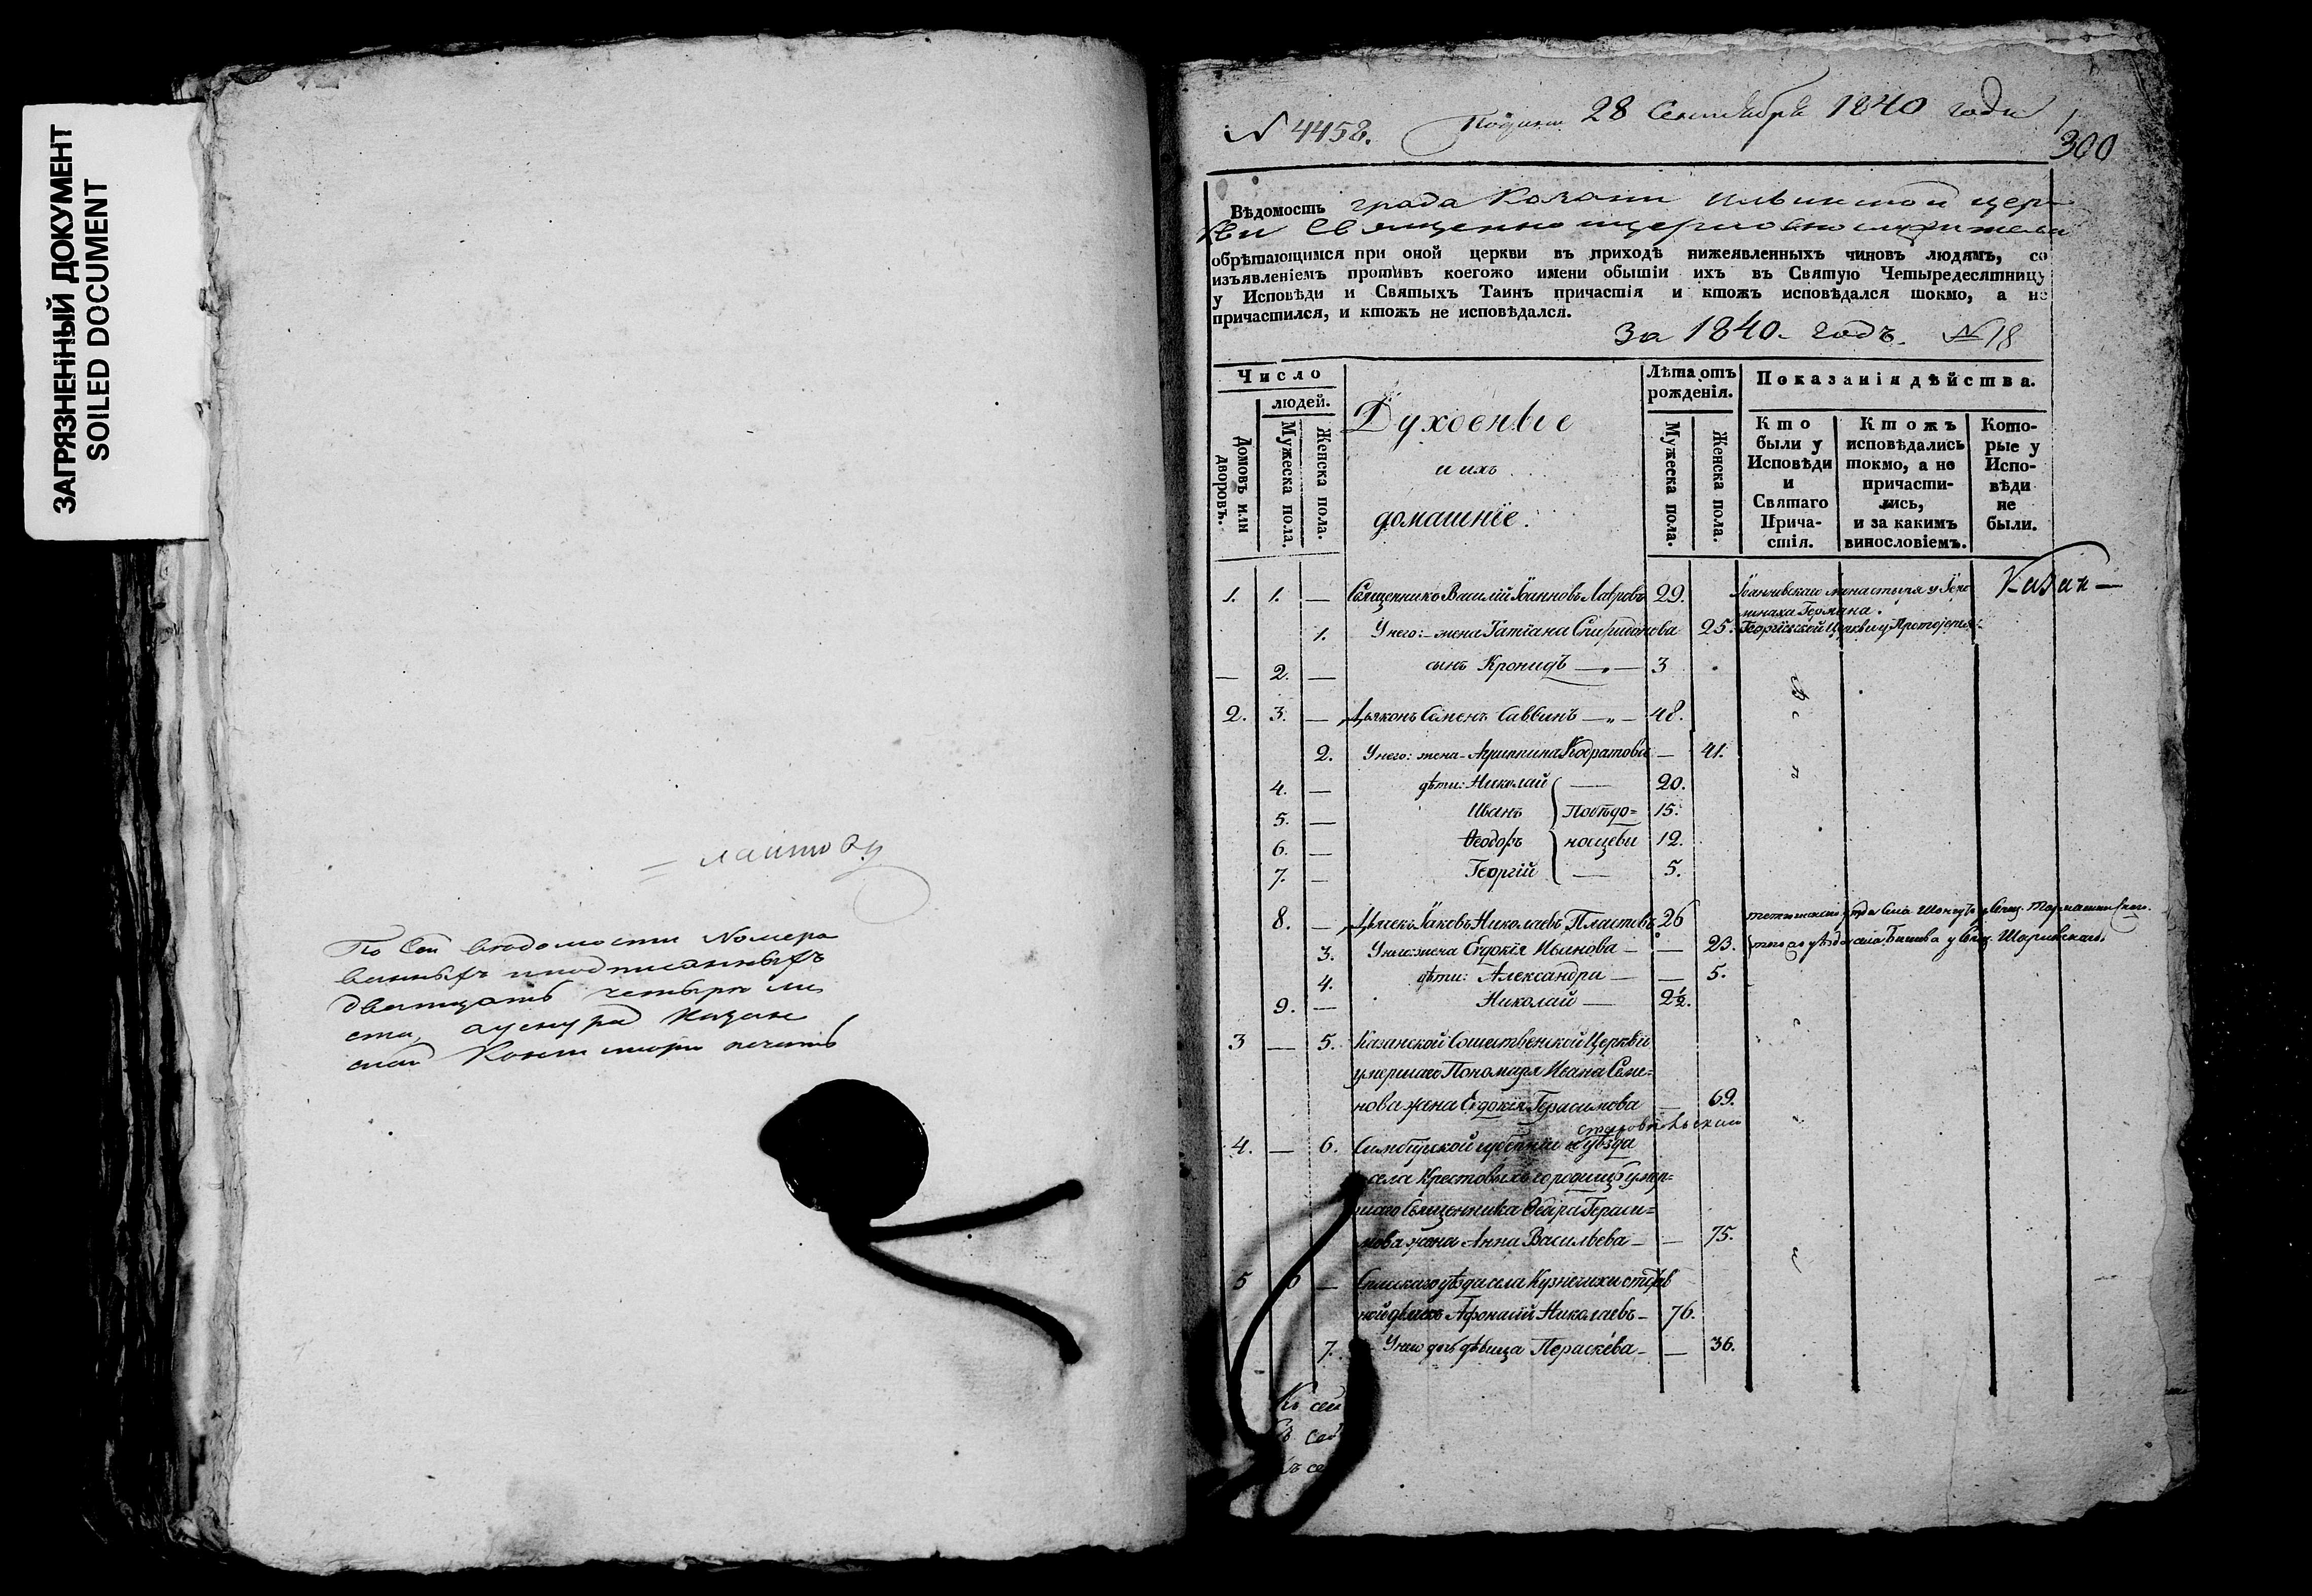 ЗАГРЯЗНЕННЫЙ ДОКУМЕНТ
SOILED DOCUMENT
По сей ведомости номеро
ванныхъ и подписанныхъ
дватцать четыре ли
ста,
Казан
ской печать
N 4458. 28 Сентября 1840 года
300
Вѣдомость града Казани Ильинской цер
кви священно церковно служители
обрѣтающимся при оной церкви въ приходѣ нижеявленныхъ чиновъ людямъ, со
изъявленіемъ противъ коегожо имени обытіи ихъ въ Святую Четыредесятницу
у Исповѣди и Святыхъ Таинъ причастія и ктожъ исповѣдался токмо, а не
причастился, и ктожъ не исповѣдался.
За 1840. годъ. №18
Число
людей.
Домовъ или дворовъ.
Мужеска пола.
Женска пола.
Духовные
и ихъ
домашніе.
Лѣта отъ рожденія.
Мужеска пола.
Женска пола.
Показанія дѣйства.
Кто были у Исповѣди и Святаго Причастія.
Ктожъ исповѣдались токмо, а не причастились, и за какимъ винословіемъ.
Которые у Исповѣди не были.
1. 1. — Священникъ Василій Іоанновъ Лавровъ 29. Іоанновскаго монастыря у Іеро
монаха Германа.
1. У него: жена Татіана Спиридонова 25. Георгіевской Церкви у Протоіерея
— 2. — сынъ Кронидъ — 3
2. 3. — Дьяконъ Семенъ Саввинъ — 48.
2. У него: жена Агрипина Кодратова — 41.
4. — дѣти: Николай — 20.
5. — Иванъ Побѣдо= 15.
6. — Ѳеодоръ носцевы 12.
7. — Георгій — 5.
8. — Дьячекъ Іаковъ Николаевъ Пластовъ 26
3. У него жена Евдокія Иванова — 23.
4. дѣти: Александра — 5.
9. — Николай — 2½.
3 — 5. Казанской Сошественской Церкви
умершаго Пономаря Ивана Семе=
нова жена Евдокія Герасимова — 69.
4. — 6. Симбирской губерніи уѣзда
села Крестовыхъ городищъ умер=
шаго Священника Ѳедора Гераси=
мова жена Анна Васильева — 75.
5 — Спаскаго уѣзда села Кузнечихи
ной дьячекъ Афонасій Николаевъ — 76.
7. У него дочь дѣвица Параскева — 36.
Къ сей